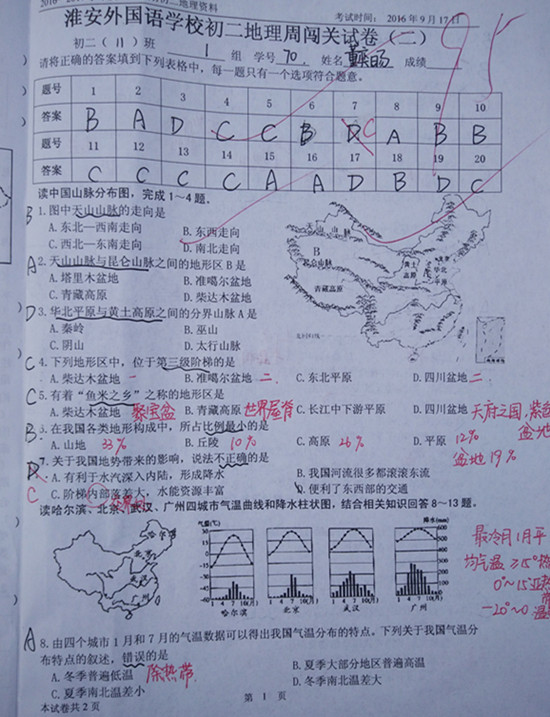 地理资料
考试时间：2016年9月17日
淮安外国语学校初二地理周闯关试卷（二）
初二（11）班 1 组 学号 70 姓名 成绩
请将正确的答案填到下列表格中，每一题只有一个选项符合题意。
题号 1 2 3 4 5 6 7 8 9 10
答案 B A D C C B D C A B B
题号 11 12 13 14 15 16 17 18 19 20
答案 C C C C A A D B D C
读中国山脉分布图，完成1～4题。
B 1. 图中天山山脉的走向是
A. 东北—西南走向 B. 东西走向
C. 西北—东南走向 D. 南北走向
A 2. 天山山脉与昆仑山脉之间的地形区B是
A. 塔里木盆地 B. 准噶尔盆地
C. 青藏高原 D. 柴达木盆地
D 3. 华北平原与黄土高原之间的分界山脉A是
A. 秦岭 B. 巫山
C. 阴山 D. 太行山脉
天山山脉
B
昆仑山脉
青藏高原
黄土高原
华北平原
C 4. 下列地形区中，位于第三级阶梯的是
A. 柴达木盆地 一 B. 准噶尔盆地 二 C. 东北平原 D. 四川盆地 二
C 5. 有着“鱼米之乡”之称的地形区是
A. 柴达木盆地 聚宝盆 B. 青藏高原 世界屋脊 C. 长江中下游平原 D. 四川盆地 天府之国，紫色盆地
B 6. 在我国各类地形构成中，所占比例最小的是
A. 山地 33% B. 丘陵 10% C. 高原 26% D. 平原 12%
盆地 19%
7. 关于我国地势带来的影响，说法不正确的是
A. 有利于水汽深入内陆，形成降水 B. 我国河流很多都滚滚东流
C C. 阶梯内部落差大，水能资源丰富 D. 便利了东西部的交通
读哈尔滨、北京、武汉、广州四城市气温曲线和降水柱状图，结合相关知识回答8～13题。
哈尔滨
北京
武汉
广州
气温(℃) 降水(mm)
1 4 7 10(月) 1 4 7 10(月) 1 4 7 10(月) 1 4 7 10(月)
哈尔滨 北京 武汉 广州
最冷月1月平
均气温 ≥15°热
0～15亚热
-20°～0 温
A 8. 由四个城市1月和7月的气温数据可以得出我国气温分布的特点。下列关于我国气温分
布特点的叙述，错误的是
A. 冬季普遍低温 除热带 B. 夏季大部分地区普遍高温
C. 夏季南北温差小 D. 冬季南北温差大
本试卷共2页
第 1 页